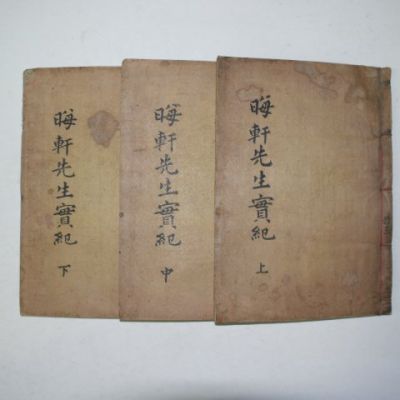 晦軒先生實紀
上
晦軒先生實紀
中
晦軒先生實紀
下